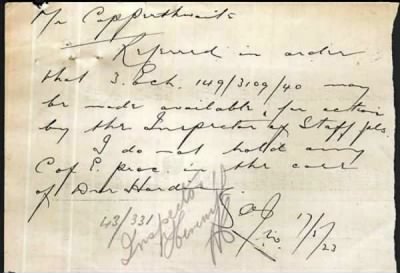 Mr Copperthwaite
Referred in order
that 3. Ech. 149/3109/40 may
be made available, for action
by the Inspector of Staff pls.
I do not hold any
C of E. proc. in the case
of
43/331
Inspector
17/5/23